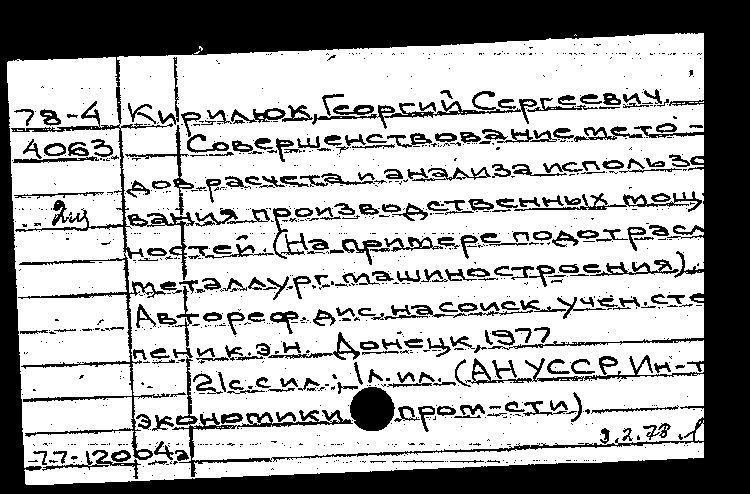 78-4 Кирилюк, Георгий Сергеевич.
4063 Совершенствование мето-
дов расчета и анализа использо
2из вания производственных мощ
ностей. (На примере подотрасл
металлург. машиностроения).
Автореф. дис. на соиск. учен. сте
пени к.э.н. Донецк, 1977.
21с. с ил.; 1л. ил. (АН УССР. Ин-т
экономики пром-сти).
9.2.78
77-12004а